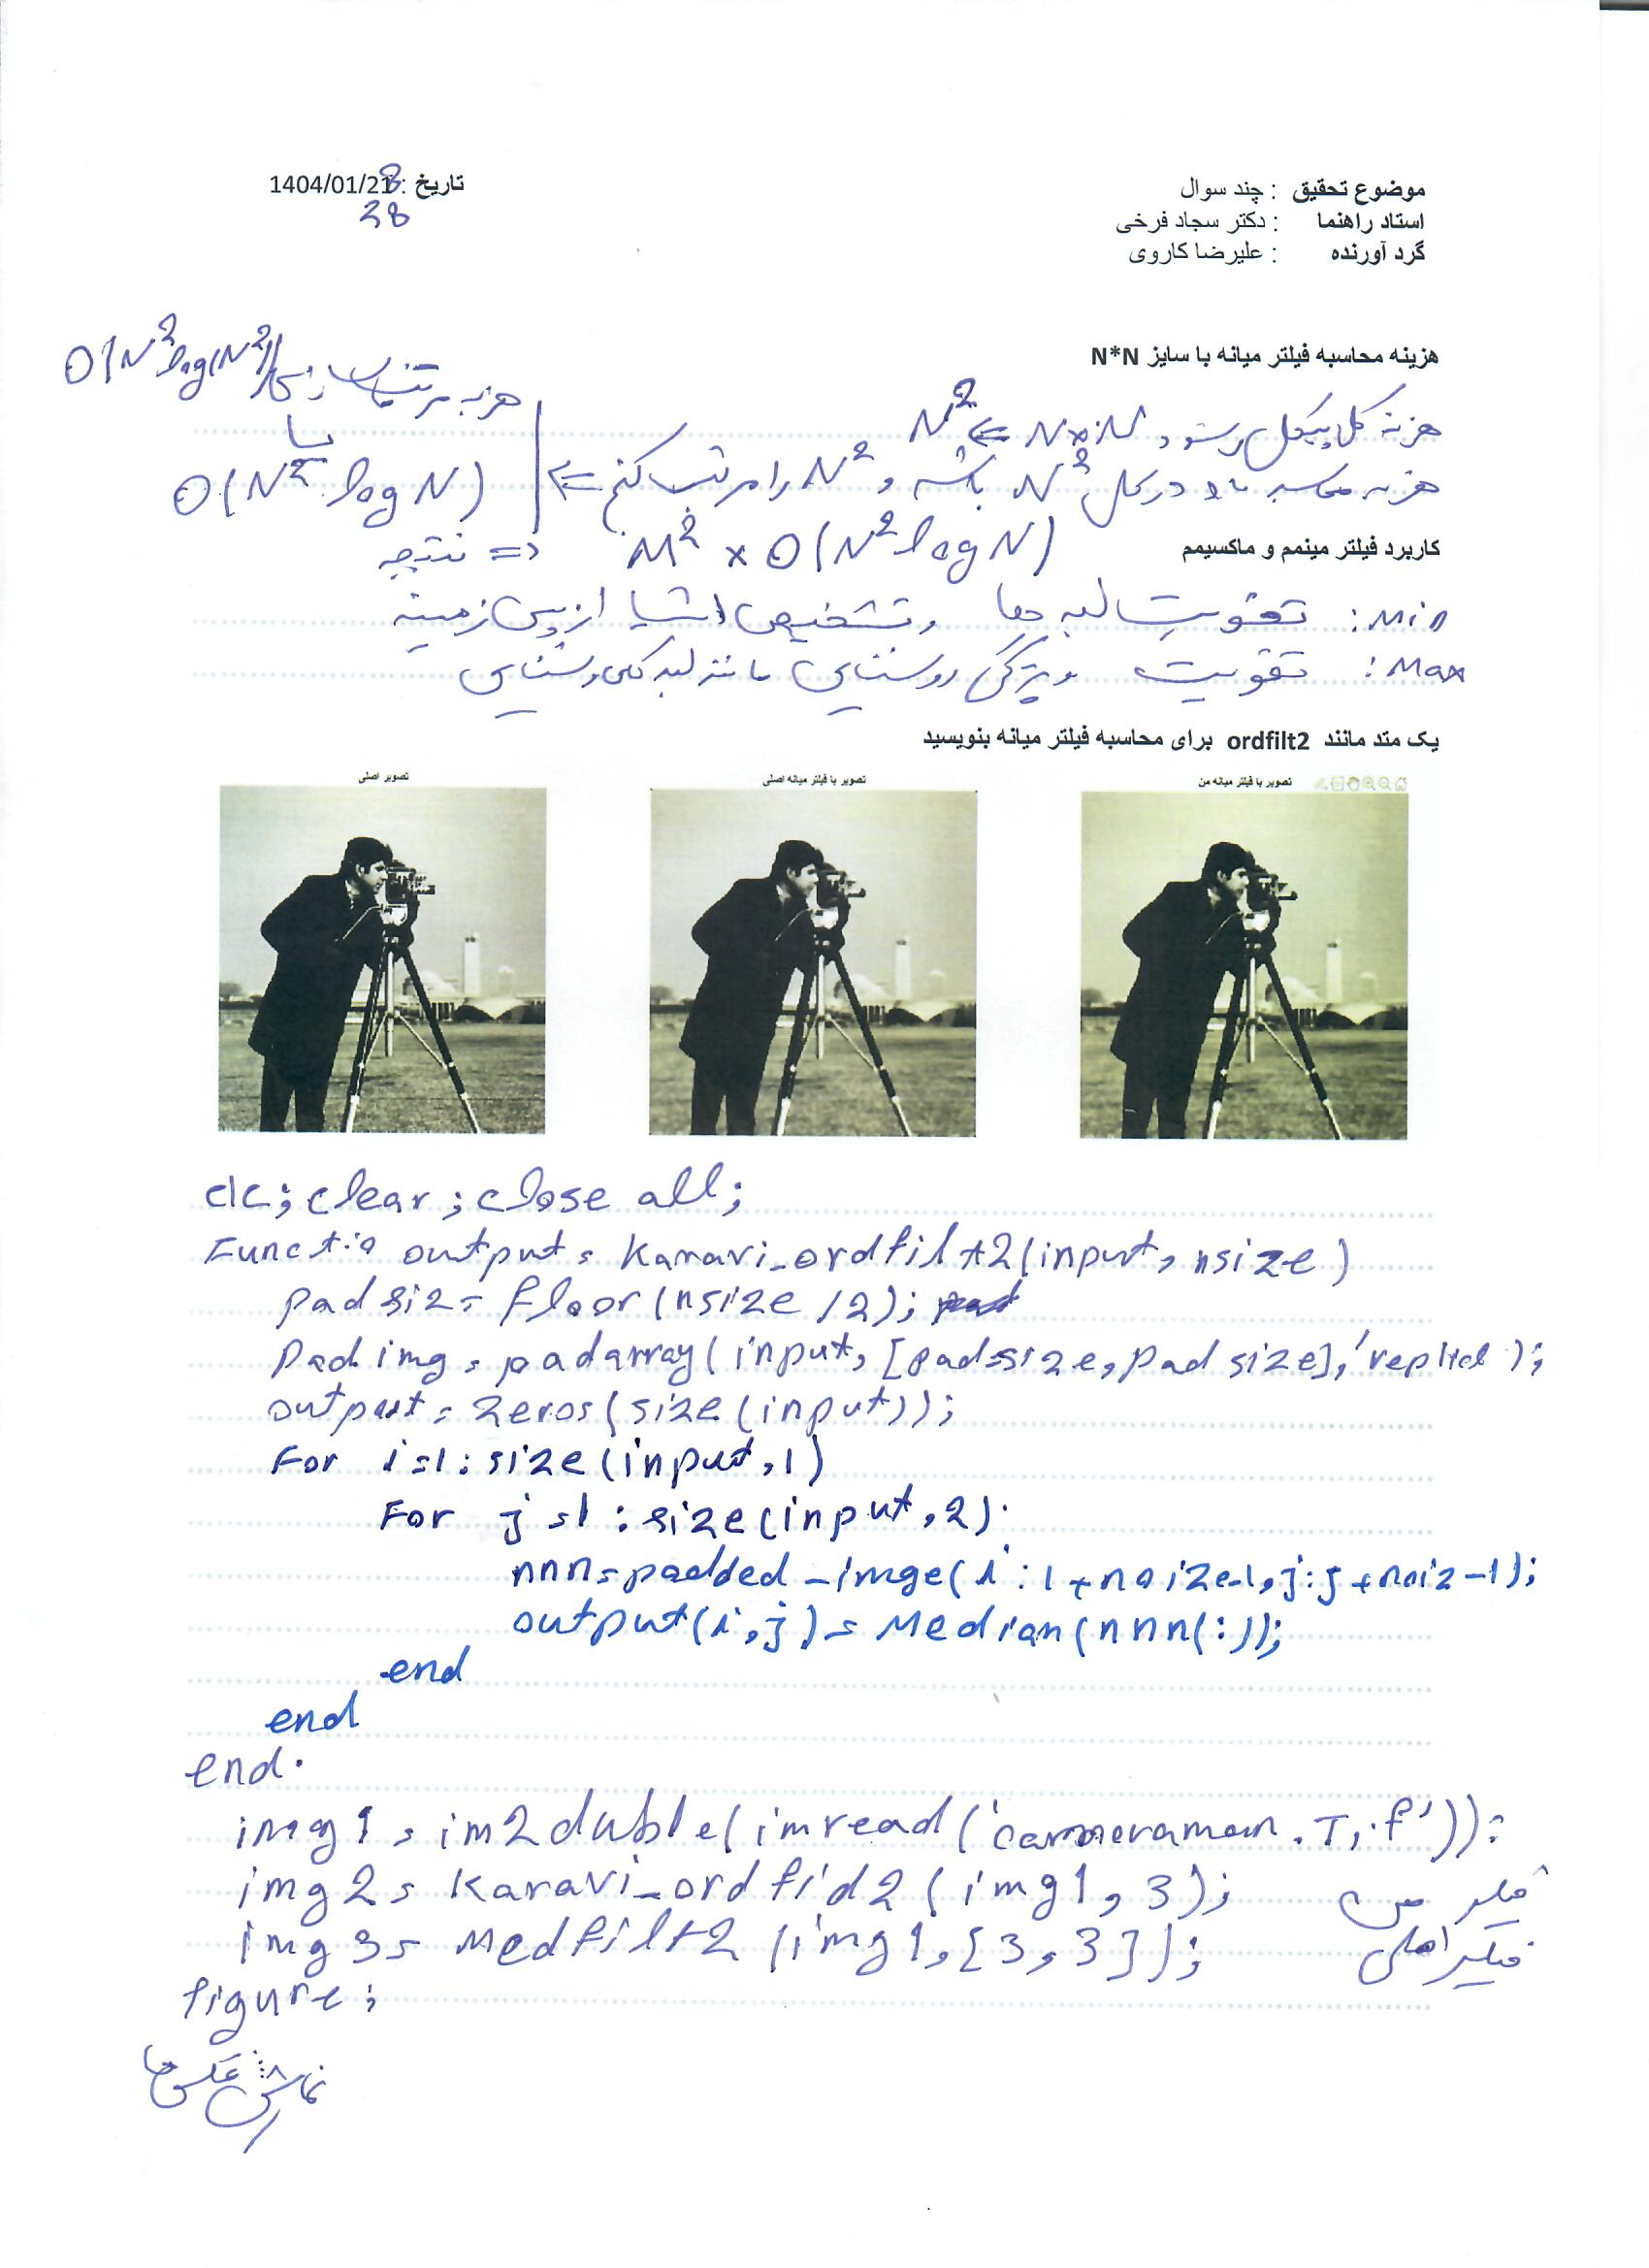 موضوع تحقیق : چند سوال
تاریخ : 1404/01/28
28
استاد راهنما : دکتر سجاد فرخی
گرد آورنده : علیرضا کاروی
هزینه محاسبه فیلتر میانه با سایز N*N
هزینه کل پیکل N×N ⇐ N²
هزینه مرتب سازی O(N² log(N²))
هزینه محاسبه در کل N² باشه و N² را مرتب کنم ⇐
یا
O(N² log N)
نتیجه => M² × O(N² log N)
کاربرد فیلتر مینمم و ماکسیمم
Min : تقویت لبه ها و تشخیص اشیا از پس زمینه
Max : تقویت ویژگی روشنایی مانند لبه های روشنایی
یک متد مانند ordfilt2 برای محاسبه فیلتر میانه بنویسید
تصویر با فیلتر میانه من
تصویر با فیلتر میانه اصلی
تصویر اصلی
clc; clear; close all;
Functio output = Karavi_ordfilt2(input, nsize)
pad siz = floor(nsize/2);
Pad img = padarray(input, [padsize, pad size], 'replicl);
output = zeros(size(input));
For i=1:size(input,1)
For j=1:size(input,2)
nnn=padded_imge(i:i+nsize-1,j:j+nsiz-1);
output(i,j)=Median(nnn(:));
end
end
end.
img1 = im2duble(imread('cameraman.Tif')):
img2= Karavi_ordfid2(img1,3); فیلتر من
img3= Medfilt2(img1,[3,3]); فیلتر اصلی
figure;
نمایش عکس ها